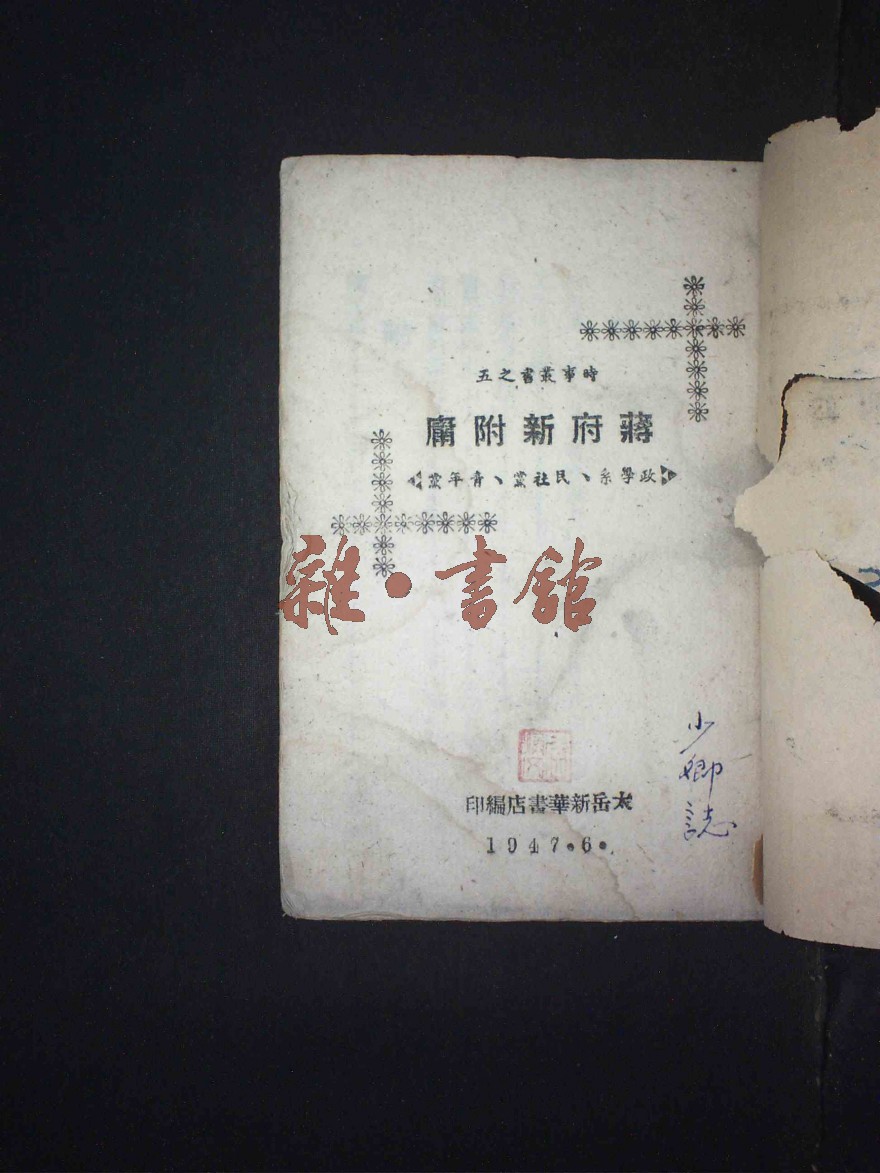 時事叢書之五
蔣府新附庸
政學系、民社黨、青年黨
雜·書館
太岳新華書店編印
1947.6.
少卿誌